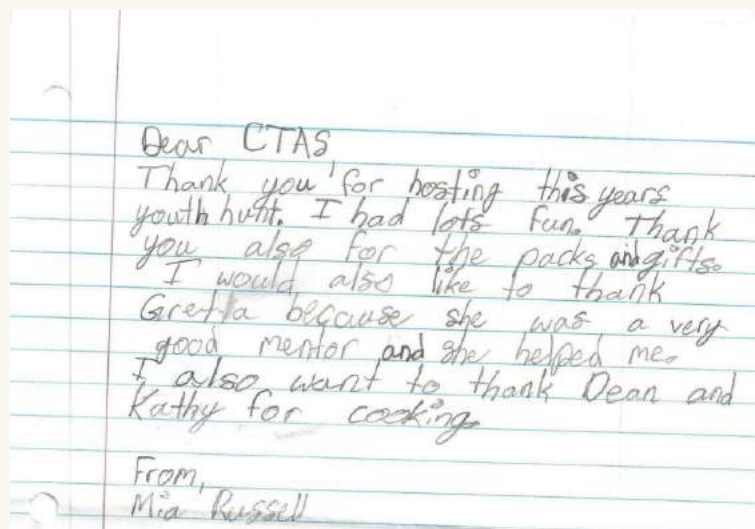 Dear CTAS,
Thank you for hosting this years
youth hunt. I had lots fun. Thank
you also for the packs and gifts.
I would also like to thank
Gretta because she was a very
good mentor and she helped me.
I also want to thank Dean and
Kathy for cooking.
From,
Mia Russell